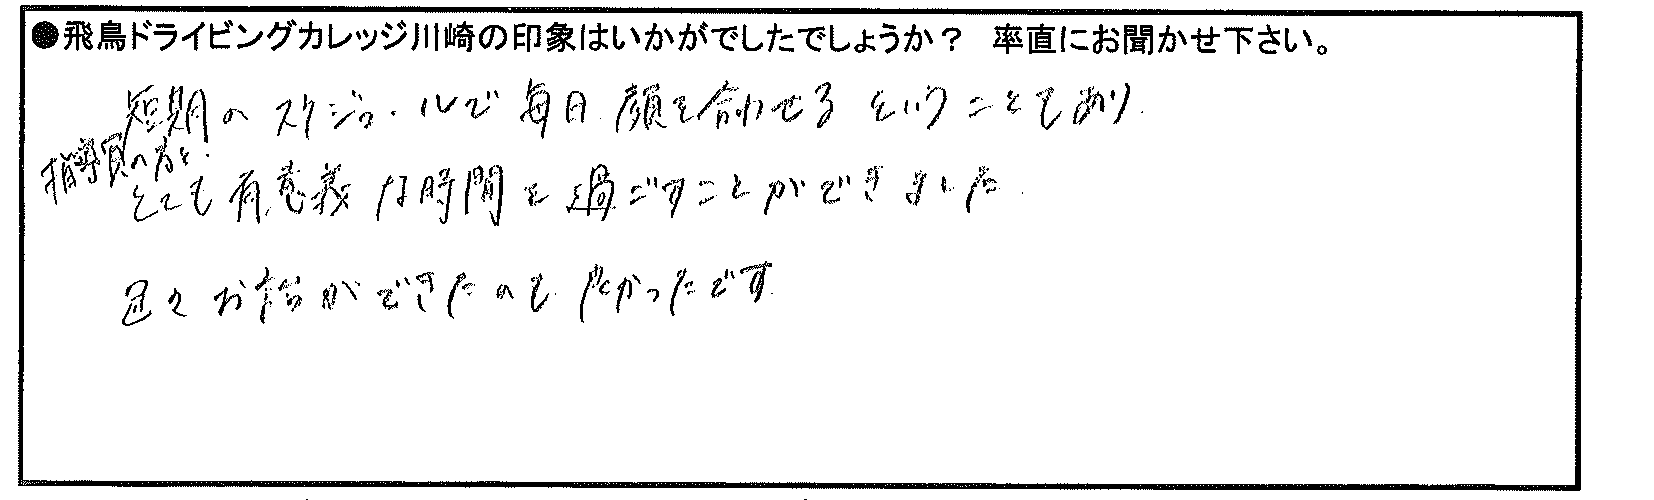 ●飛鳥ドライビングカレッジ川崎の印象はいかがでしたでしょうか？ 率直にお聞かせ下さい。
短期のスケジュールで毎日顔を合わせるということもあり、
指導員の方と、
とても有意義な時間を過ごすことができました。
色々お話ができたのも良かったです